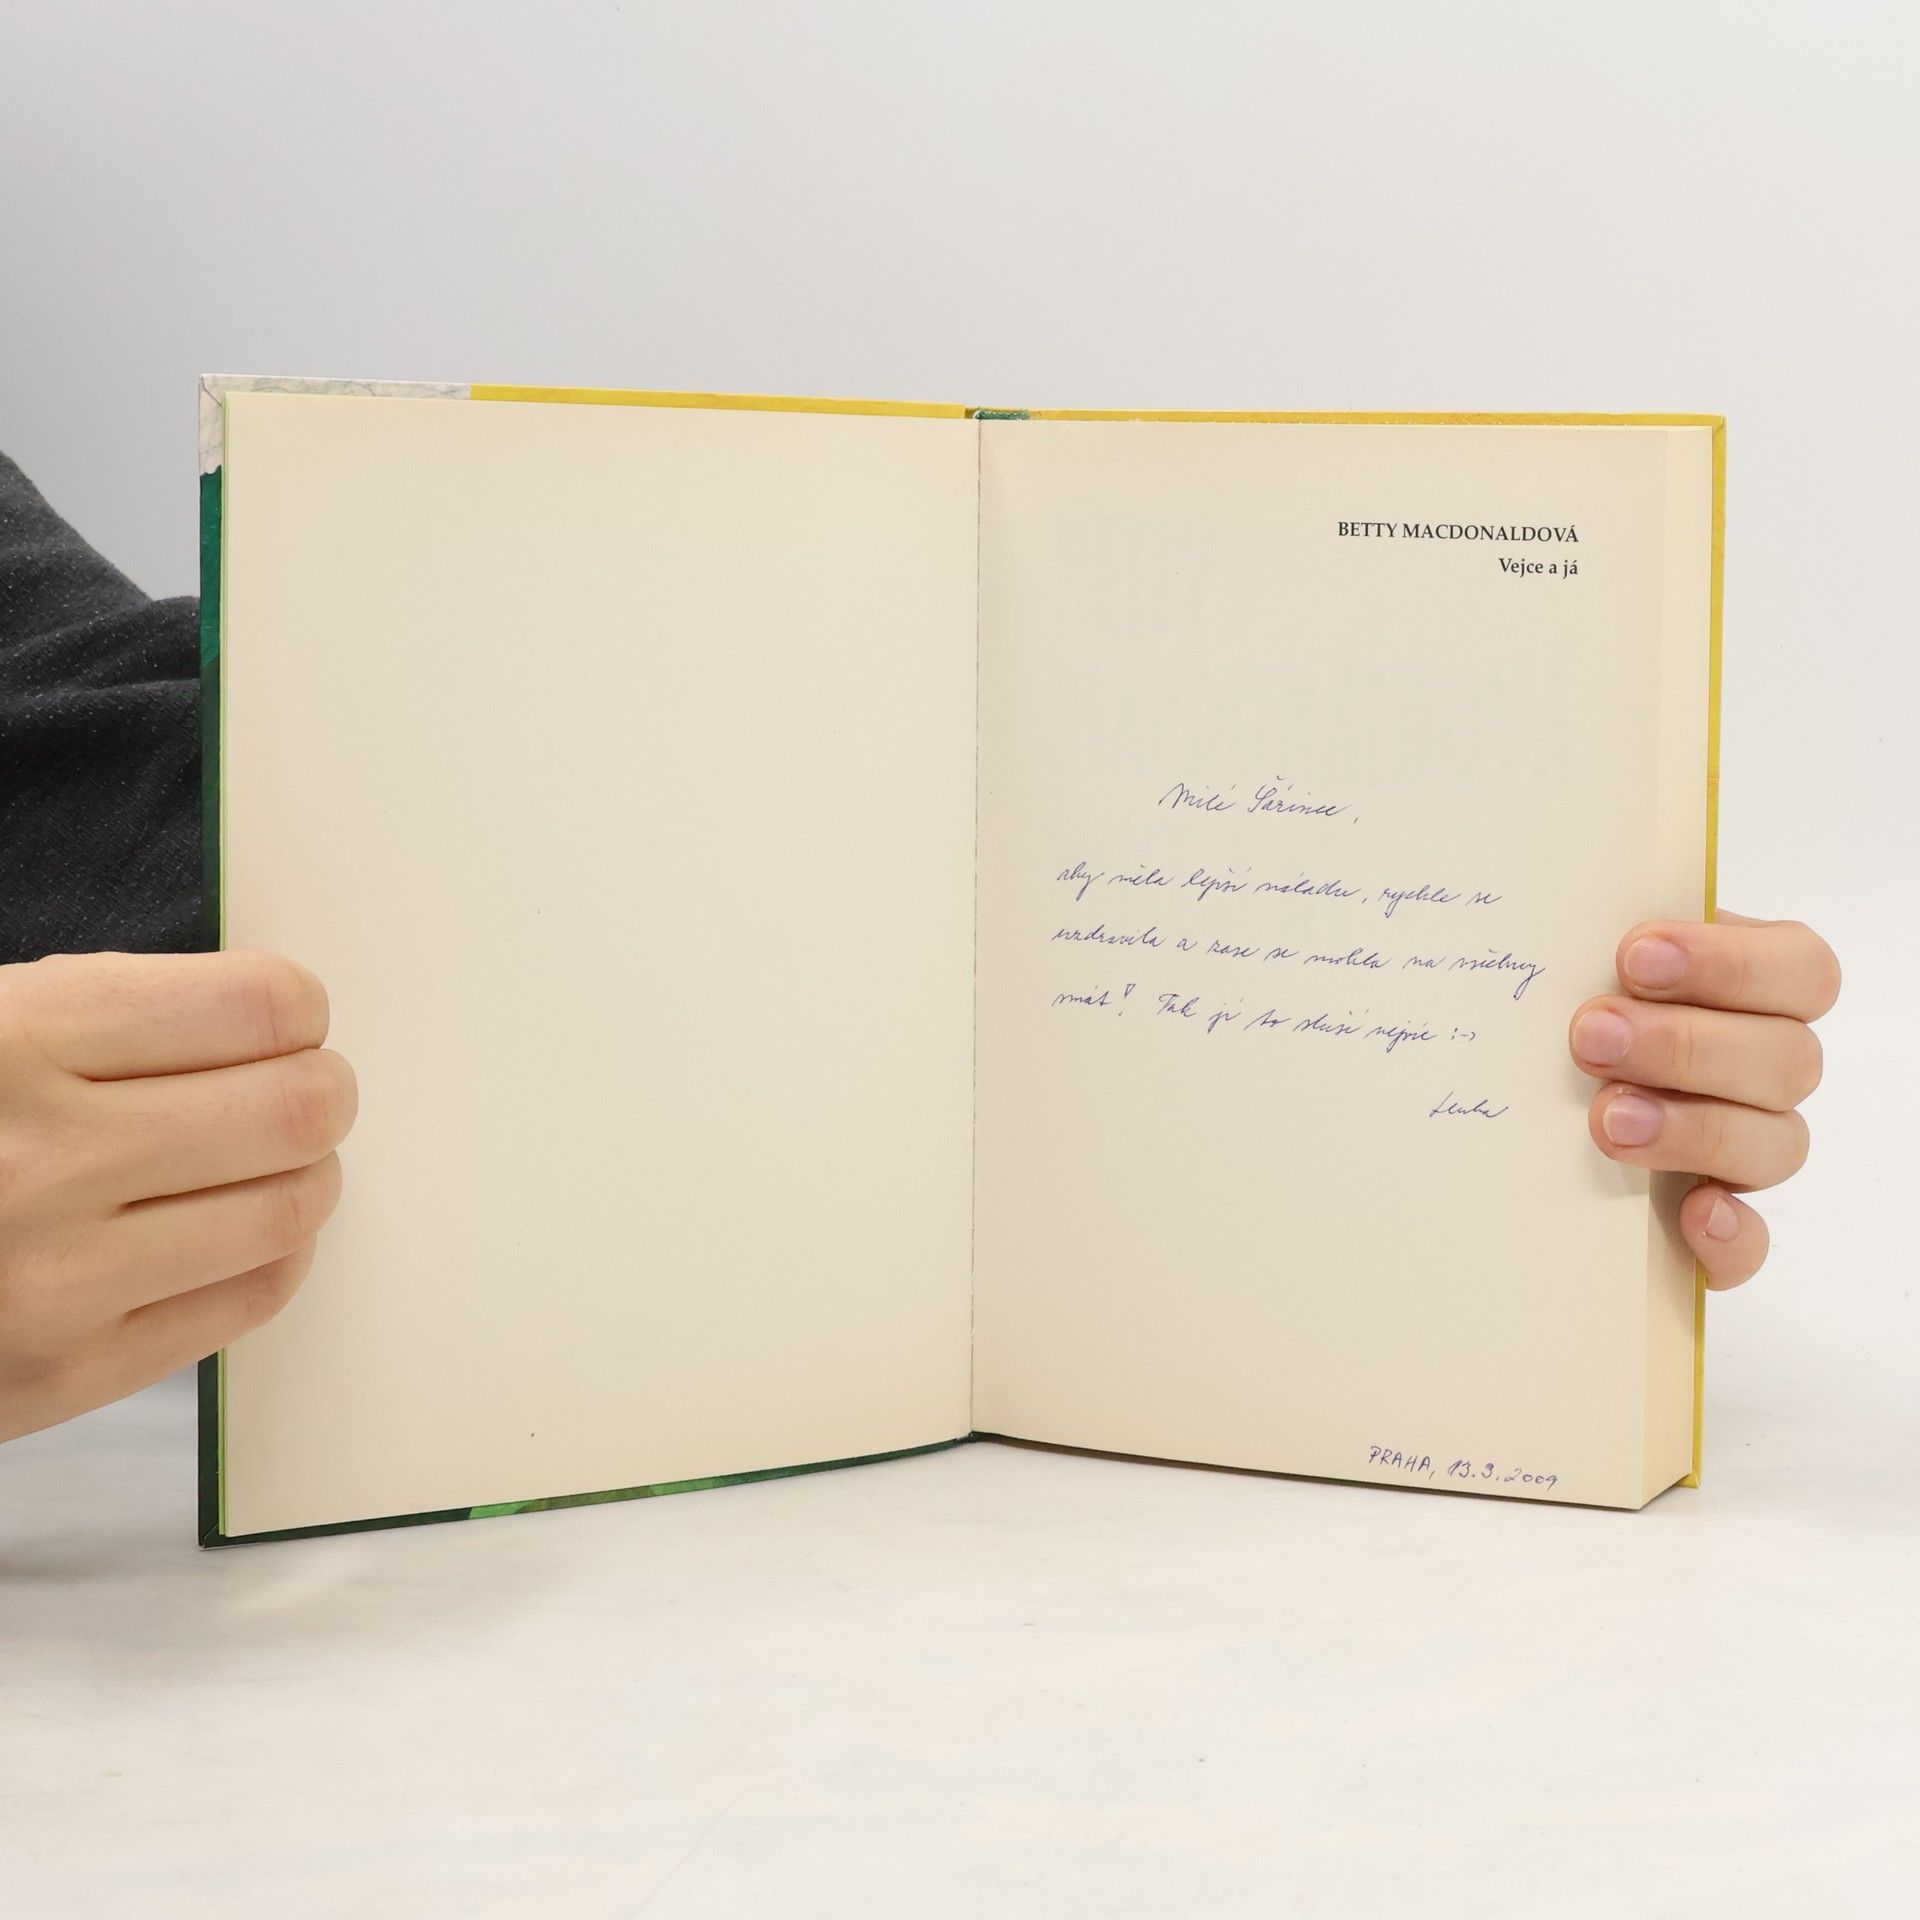 BETTY MACDONALDOVÁ
Vejce a já
Milé Šárince,
aby měla lepší náladu, rychle se
uzdravila a zase se mohla na všechny
smát! Tak jí to sluší nejvíc :-)
Lenka
PRAHA, 13.3.2009